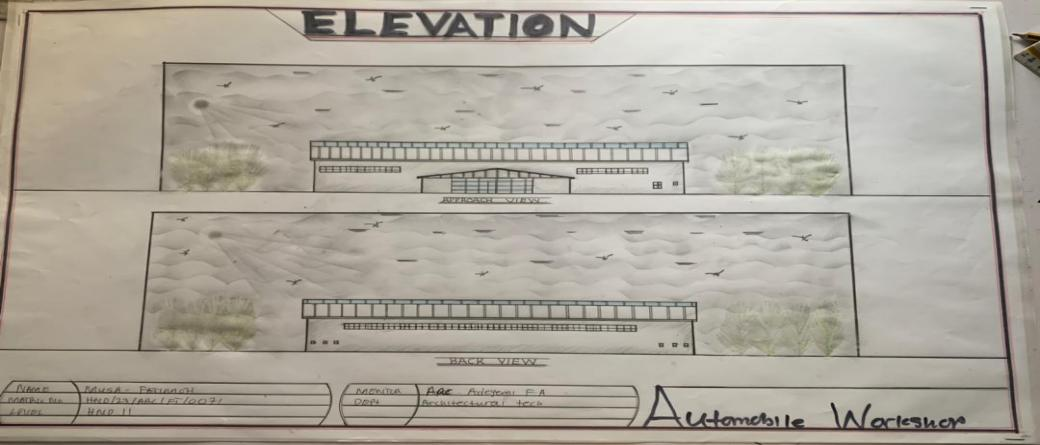 ELEVATION
APPROACH VIEW
BACK VIEW
NAME MUSA - 
MATRIC No HND/23/ARC/FT/0071
LEVEL HND II
MENTOR ARC Adeyemi F A
DEPT Architectural tech
Automobile Workshop